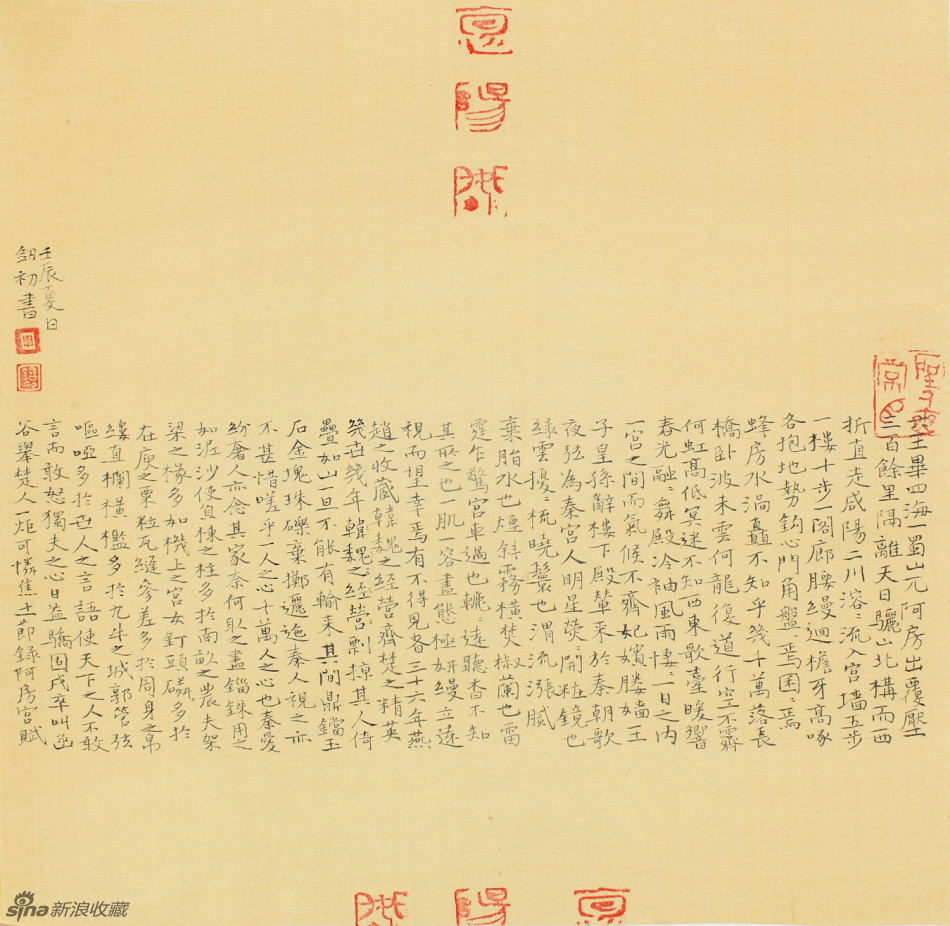 王畢四海一蜀山兀阿房出覆壓
三百餘里隔離天日驪山北構而西
折直走咸陽二川溶〻流入宫墻五步
一樓十步一閣廊腰縵迴檐牙高啄
各抱地勢鈎心鬥角盤〻焉囷〻焉
蜂房水渦矗不知乎幾千萬落長
橋卧波未雲何龍復道行空不霽
何虹高低冥迷不知西東歌臺暖響
春光融〻舞殿冷袖風雨悽〻一日之内
一宫之間而氣候不齊妃嬪媵嬙王
子皇孫辭樓下殿輦来於秦朝歌
夜弦為秦宫人明星熒〻開粧鏡也
緑雲擾〻梳曉鬟也渭流漲膩
棄脂水也煙斜霧橫焚椒蘭也雷
霆乍驚宫車過也轆〻遠聽杳不知
其所之也一肌一容盡態極妍縵立遠
視而望幸焉有不得見者三十六年燕
趙之收藏韓魏之經營齊楚之精英
幾世幾年韓魏之經營剽掠其人倚
疊如山一旦不能有輸来其間鼎鐺玉
石金塊珠礫棄擲邐迤秦人視之亦
不甚惜嗟乎一人之心千萬人之心也秦愛
紛奢人亦念其家奈何取之盡錙銖用之
如泥沙使負棟之柱多於南畝之農夫架
梁之椽多如機上之宫女釘頭磷〻多於
在庾之粟粒瓦縫參差多於周身之帛
縷直欄橫檻多於九土之城郭管弦
嘔啞多於世人之言語使天下之人不敢
言而敢怒獨夫之心日益驕固戍卒叫函
谷舉楚人一炬可憐焦土節録阿房宫賦
壬辰夏日
剑初書
sina新浪收藏